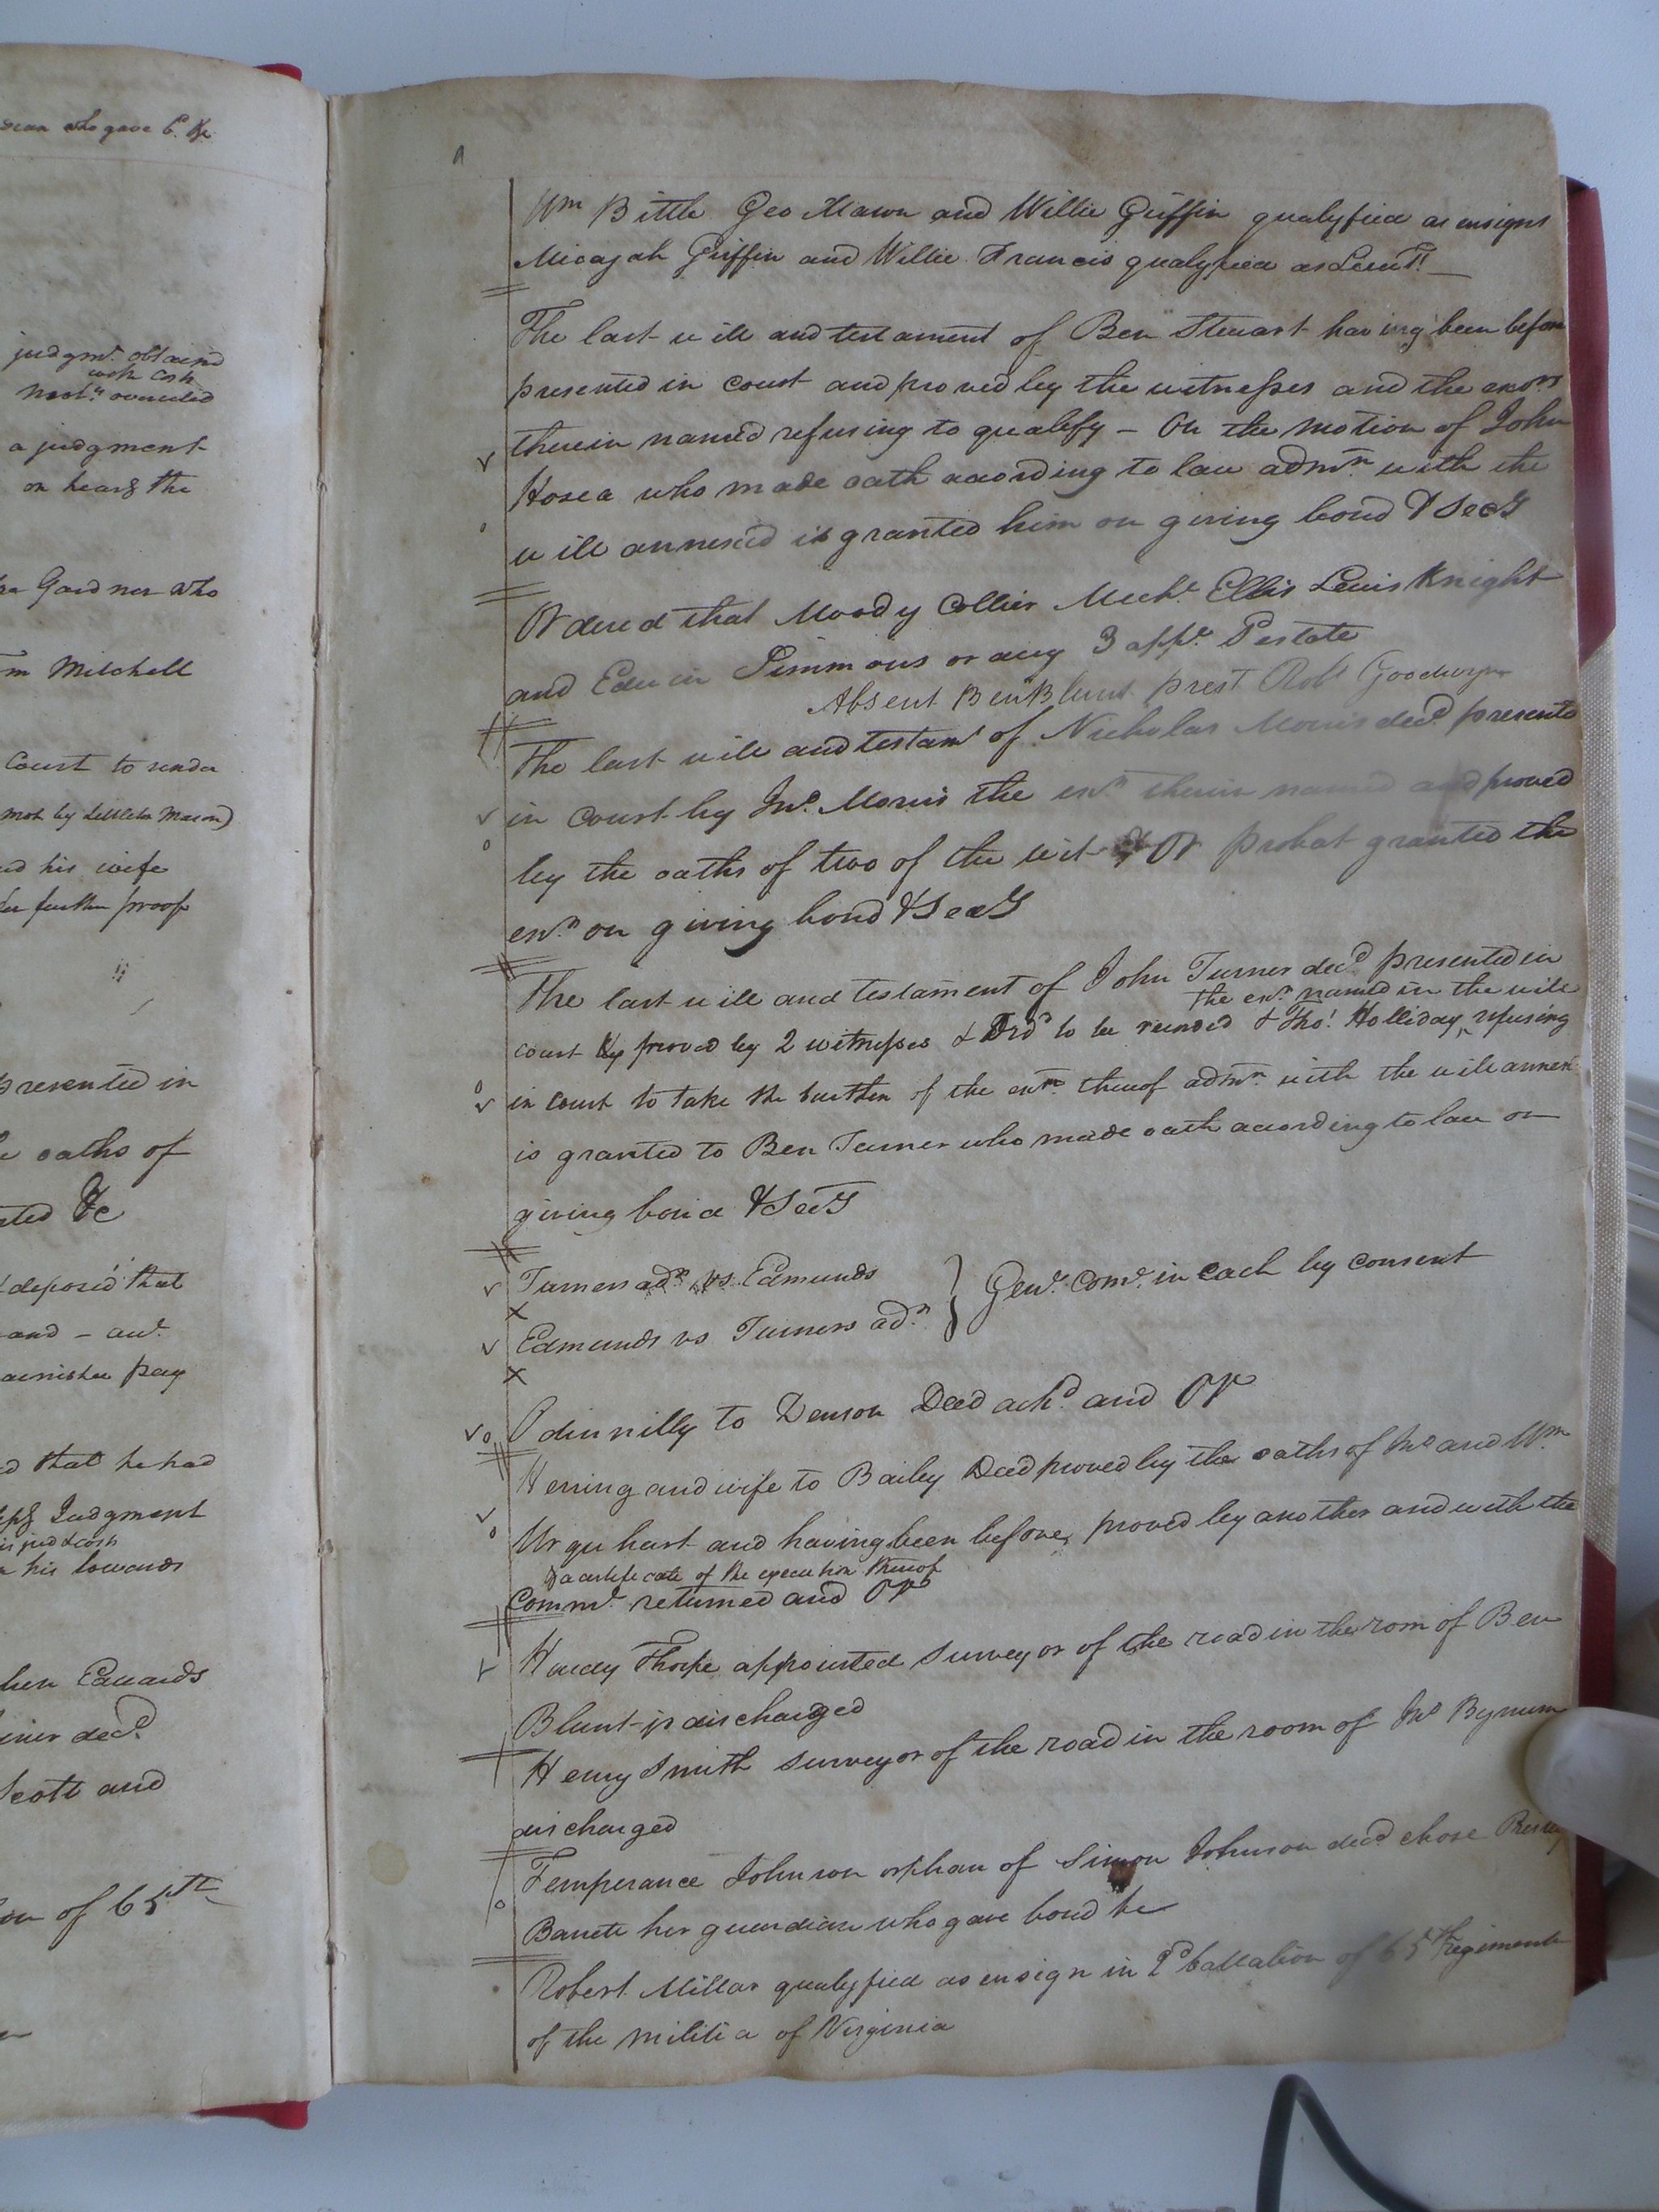 scian who gave bd &c
judgmt. obtained
with Costs
overruled
a judgment
on hearg the
Gardner who
m Mitchell
Court to render
mot by Littleton Mason)
and his wife
further proof
presented in
oaths of
&c
deposed that
and –
garnishee pay
ed that he had
Judgment
jud & costs
his towards
Edwards
decd.
Scott and
on of 65th
Wm Bittle Geo Mason and Willie Griffin qualyfied as ensigns
Micajah Griffin and Willie Francis qualyfied as Lieuts.
The last will and testament of Ben Stewart having been before
presented in court and proved by the witnesses and the exors
therein named refusing to qualify – On the motion of John
Hosea who made oath according to law admn. with the
will annexed is granted him on giving bond & Secy
Ordered that Moody Collier Michl. Ellis Lewis Knight
and Edwin Simmons or any 3 appe. Pestate
Absent Ben Blunt prest Robt Goodwyn
The last will and testamt of Nicholas Morris decd. presented
in Court by Jno. Morris the exr. therein named and proved
by the oaths of two of the wit & Or probat granted the
exr. on giving bond & Secy
The last will and testament of John Turner decd presented in
the exr. named in the will
court proved by 2 witnesses & Ord to be recorded & Thos. Holliday ‸ refusing
in court to take the burthen of the exn. thereof admn. with the will annex
is granted to Ben Turner who made oath according to law on
giving bond & Secy
Turners adr. vs. Edmunds
Genl. Comn. in each by consent
Edmunds vs Turners adr.
to Denson Deed ackd. and Or
Herring and wife to Bailey Deed proved by the oaths of Jno and Wm.
Urquhart and having been before proved by another and with the
& a certificate of the execution thereof
Commn. returned and Or
Hardy Thorpe appointed surveyor of the road in the room of Ben
Blunt jr discharged
Henry Smith surveyor of the road in the room of Jno Bynum
discharged
Temperance Johnson orphan of Simon Johnson decd chose
Barrett her guardian who gave bond &c
Robert Millar qualyfied as ensign in 2d battalion of 65th Regiment
of the militia of Virginia